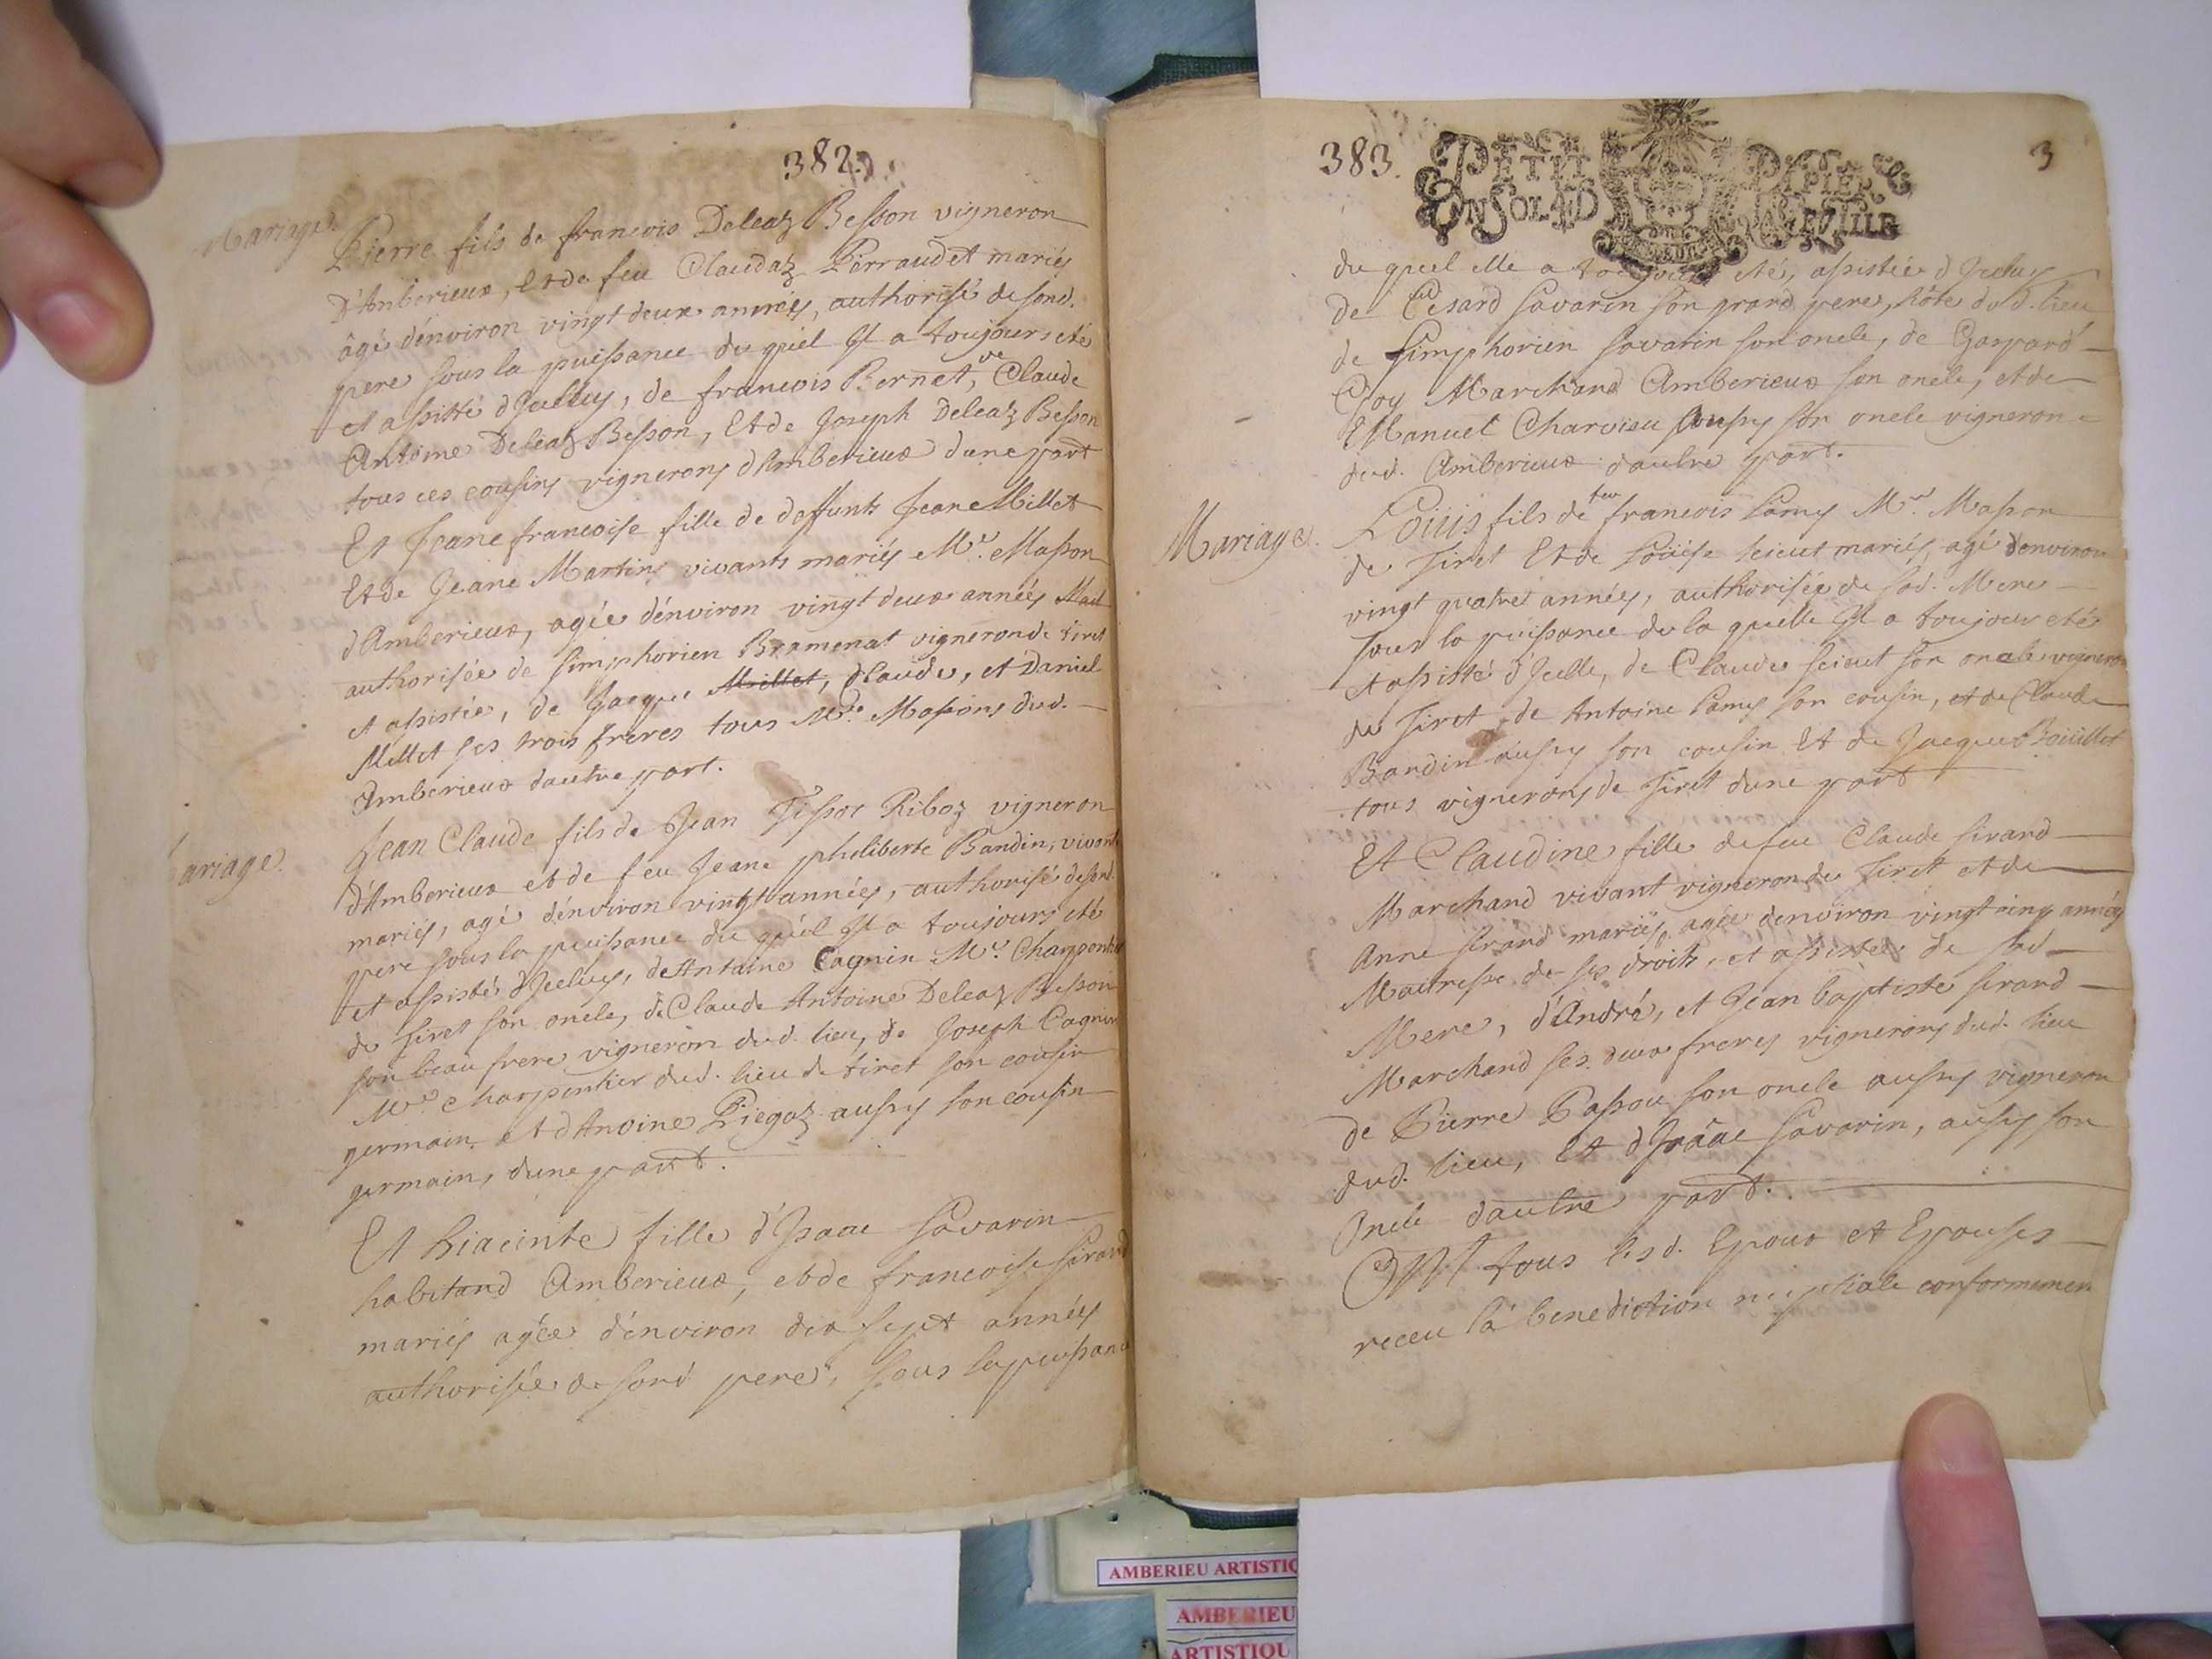 382.
Mariage
Pierre fils de francois Deleaz Besson vigneron
D'Amberieux, Et de feu Claudaz Perraudet mariés
âgé d'environ vingt deux années, authorisé de sond.
pere sous la puissance du quel Il a toujours eté
et assisté d'Jcelluy, de francois Bernet, Claude
Antoine Deleaz Besson, Et de Joseph Deleaz Besson
tous ces cousins vignerons d'Amberieux d'une part
Et Jeane francoise fille de deffunts Jeane Millet
Et de Jeane Martin vivants mariés Mr. Masson
d'Amberieux, agée d'environ vingt deux années
authorisée de simphorien Bramenat vigneron de tiret
et assistée, de Jacque Millet, Claude, et Daniel
Millet ses trois freres tous Mre. Massons dud.
Amberieux d'autre part.
ariage.
Jean Claude fils de Jean Tissot Riboz vigneron
d'Amberieux et de feu Jeane philiberte Bandin, vivants
mariés, agé d'environ vingt années, authorisé de sond.
pere sous la puissance du quel Il a toujours eté
et assisté d'Jceluy, de Antoine Cagnin Mr. Charpentier
de Tiret son oncle, de Claude Antoine Deleaz Besson
son beau frere vigneron dud. lieu, de Joseph Cagnin
Mre charpentier dud. lieu de tiret son cousin
germain, et d'Antoine Piegaz aussy son cousin
germain, d'une part.
Et hiacinte fille d'Isaac Savarin
habitand Amberieux, et de francoise sirand
mariés agée d'environ dix sept années
authorisée de sond pere, sous la puissance
383.
3
PETIT PAPIER
UN SOL 4D LA FEUILLE
du quel elle a toujours eté, assistée d'Jceluy
de Cesard Savarin son grand pere, hôte dud. lieu
de simphorien Savarin son oncle, de Gaspard
Goy Marchand Amberieux son oncle, et de
Emanuel Charvieu aussy son oncle vigneron
dud. Amberieux d'autre part.
Mariage.
Loüis fils de feu francois Lamy Mr. Masson
de Tiret Et de Loüise seieut mariés, agé d'environ
vingt quatre années, authorisée de sad. Mere
sous la puissance de la quelle Il a toujour eté
et assisté d'Jcelle, de Claude seieut son oncle vigneron
de Tiret, de Antoine Lamy son cousin, et de Claude
Bandin aussy son cousin Et de Jacque Boüillet
tous vignerons de Tiret d'une part
Et Claudine fille de feu Claude sirand
Marchand vivant vigneron de Tiret et de
Anne sirand mariés, agée d'environ vingt cinq années
Maitresse de ses droits, et assistée de sad
Mere, d'André, et Jean baptiste sirand
Marchand ses deux freres vignerons dud. lieu
de Pierre Passou son oncle aussy vigneron
dud. lieu, Et d'Isaac Savarin, aussy son
Oncle d'autre part.
Ont tous lesd. Epoux et Epouses
receu la benediction nuptiale conformemen
AMBERIEU ARTISTIQ
AMBERIEU
ARTISTIQU